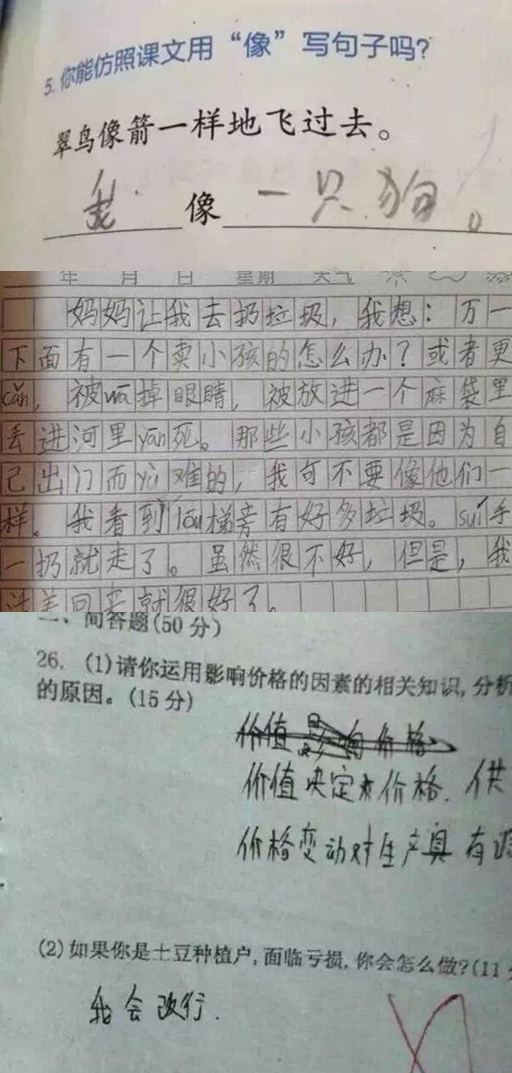 5.你能仿照课文用“像”写句子吗?
翠鸟像箭一样地飞过去。
我像一只狗。
年 月 日 星期 天气
妈妈让我去扔垃圾,我想:万一
下面有一个卖小孩的怎么办?或者更
cǎn,被wā掉眼睛,被放进一个麻袋里
丢进河里yān死。那些小孩都是因为自
己出门而yù难的,我可不要像他们一
样。我看到lóu梯旁有好多垃圾。suí手
一扔就走了。虽然很不好,但是,我
活着回来就很好了。
二、简答题(50分)
26. (1)请你运用影响价格的因素的相关知识,分析
的原因。(15分)
价值决定价格.供
价格变动对生产具有调
(2)如果你是土豆种植户,面临亏损,你会怎么做?(11
我会改行.